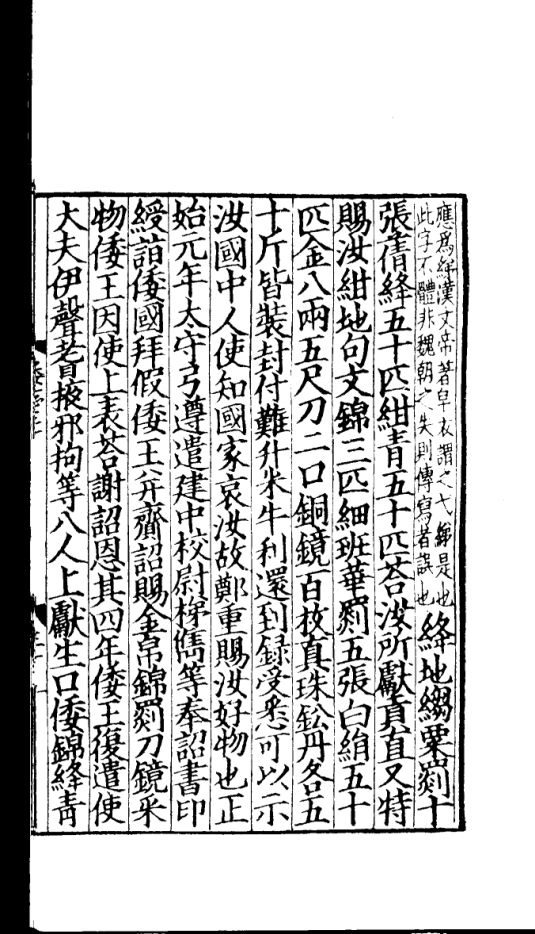 應為綈漢文帝著皁衣謂之弋綈是也
此字不體非魏朝之失則傳寫者誤也
絳地縐粟罽十
張蒨絳五十匹紺青五十匹荅汝所獻貢直又特
賜汝紺地句文錦三匹細班華罽五張白絹五十
匹金八兩五尺刀二口銅鏡百枚真珠鈆丹各五
十斤皆裝封付難升米牛利還到録受悉可以示
汝國中人使知國家哀汝故鄭重賜汝好物也正
始元年太守弓遵遣建中校尉梯儁等奉詔書印
綬詣倭國拜假倭王并齎詔賜金帛錦罽刀鏡采
物倭王因使上表荅謝詔恩其四年倭王復遣使
大夫伊聲耆掖邪拘等八人上獻生口倭錦絳青